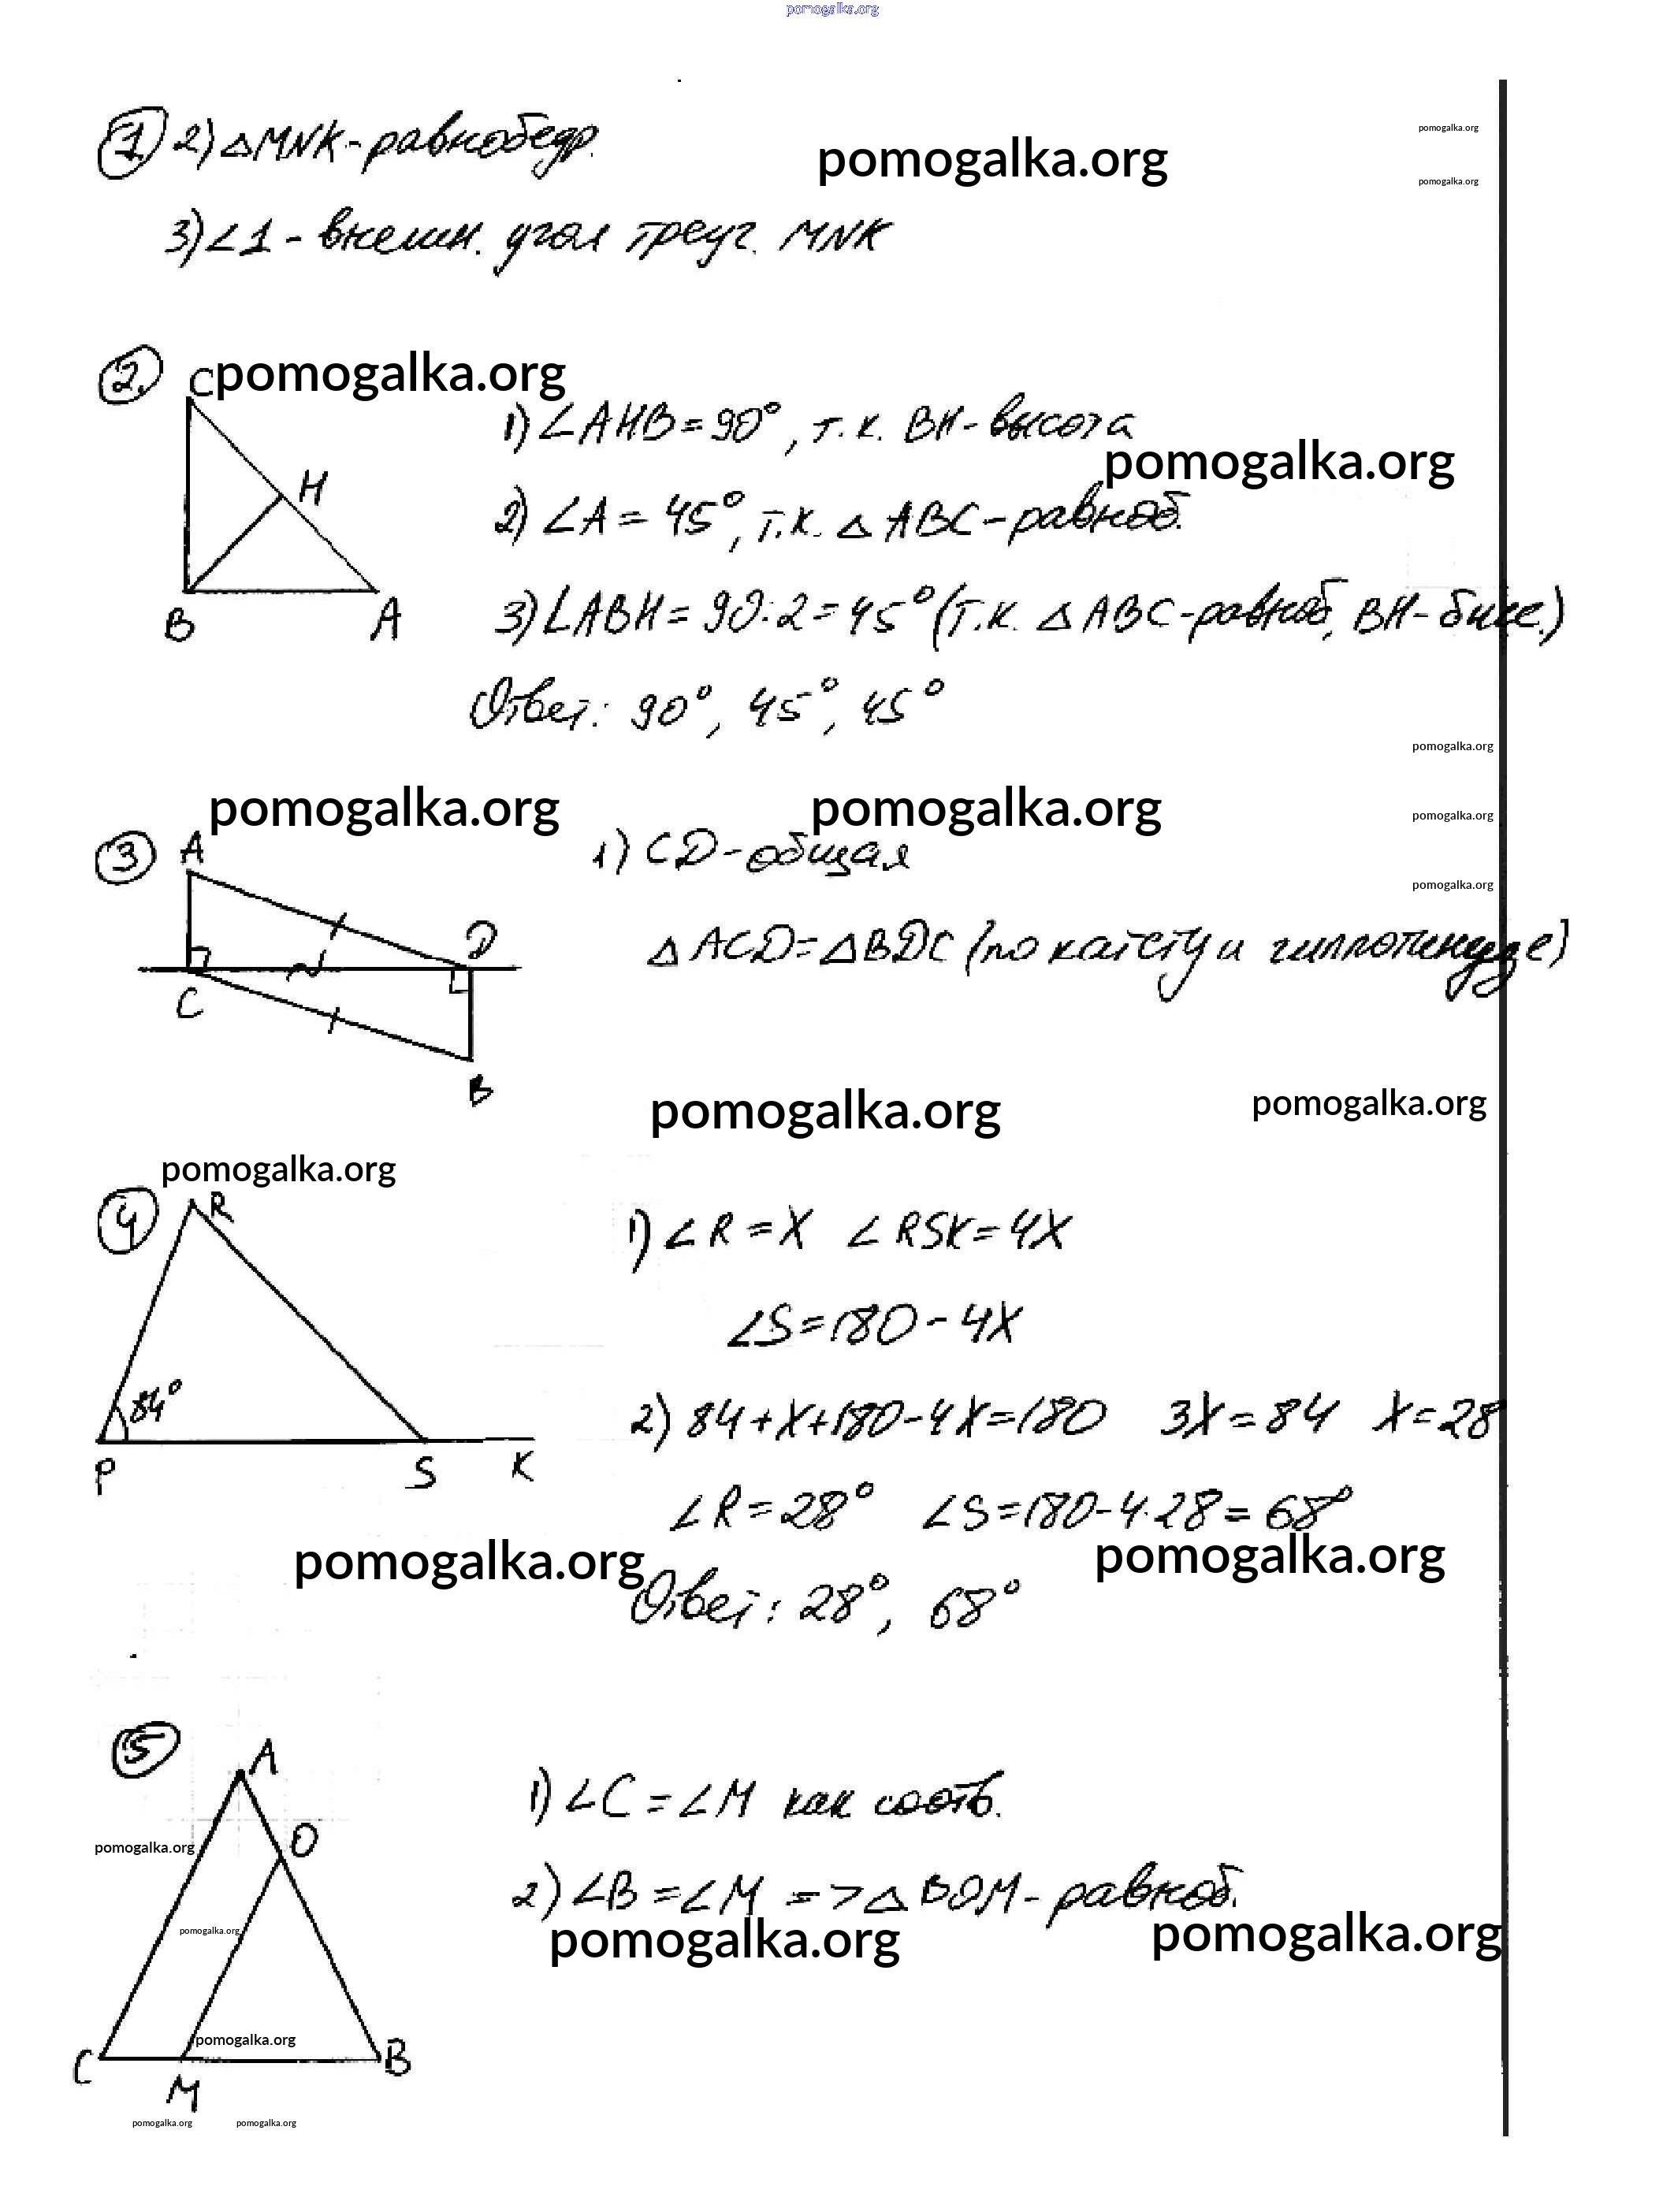 pomogalka.org
1 2) △MNK - равнобедр.
pomogalka.org
pomogalka.org
pomogalka.org
3) ∠1 - внешн. угол треуг. MNK
2.
C
pomogalka.org
H
B
A
1) ∠AHB = 90°, т.к. BH - высота
pomogalka.org
2) ∠A = 45°, т.к. △ABC - равноб.
3) ∠ABH = 90:2 = 45° (т.к. △ABC - равноб, BH - бисс.)
Ответ: 90°, 45°, 45°
pomogalka.org
pomogalka.org
pomogalka.org
pomogalka.org
pomogalka.org
3
A
D
C
B
1) CD - общая
△ACD = △BDC (по катету и гиппотинузе)
pomogalka.org
pomogalka.org
pomogalka.org
4
R
84°
P
S
K
1) ∠R = X ∠RSK = 4X
∠S = 180 - 4X
2) 84 + X + 180 - 4X = 180 3X = 84 X = 28
∠R = 28° ∠S = 180 - 4·28 = 68°
pomogalka.org
pomogalka.org
Ответ: 28°, 68°
5
A
O
pomogalka.org
pomogalka.org
pomogalka.org
C
M
B
1) ∠C = ∠M как соотв.
2) ∠B = ∠M => △BOM - равноб.
pomogalka.org
pomogalka.org
pomogalka.org
pomogalka.org